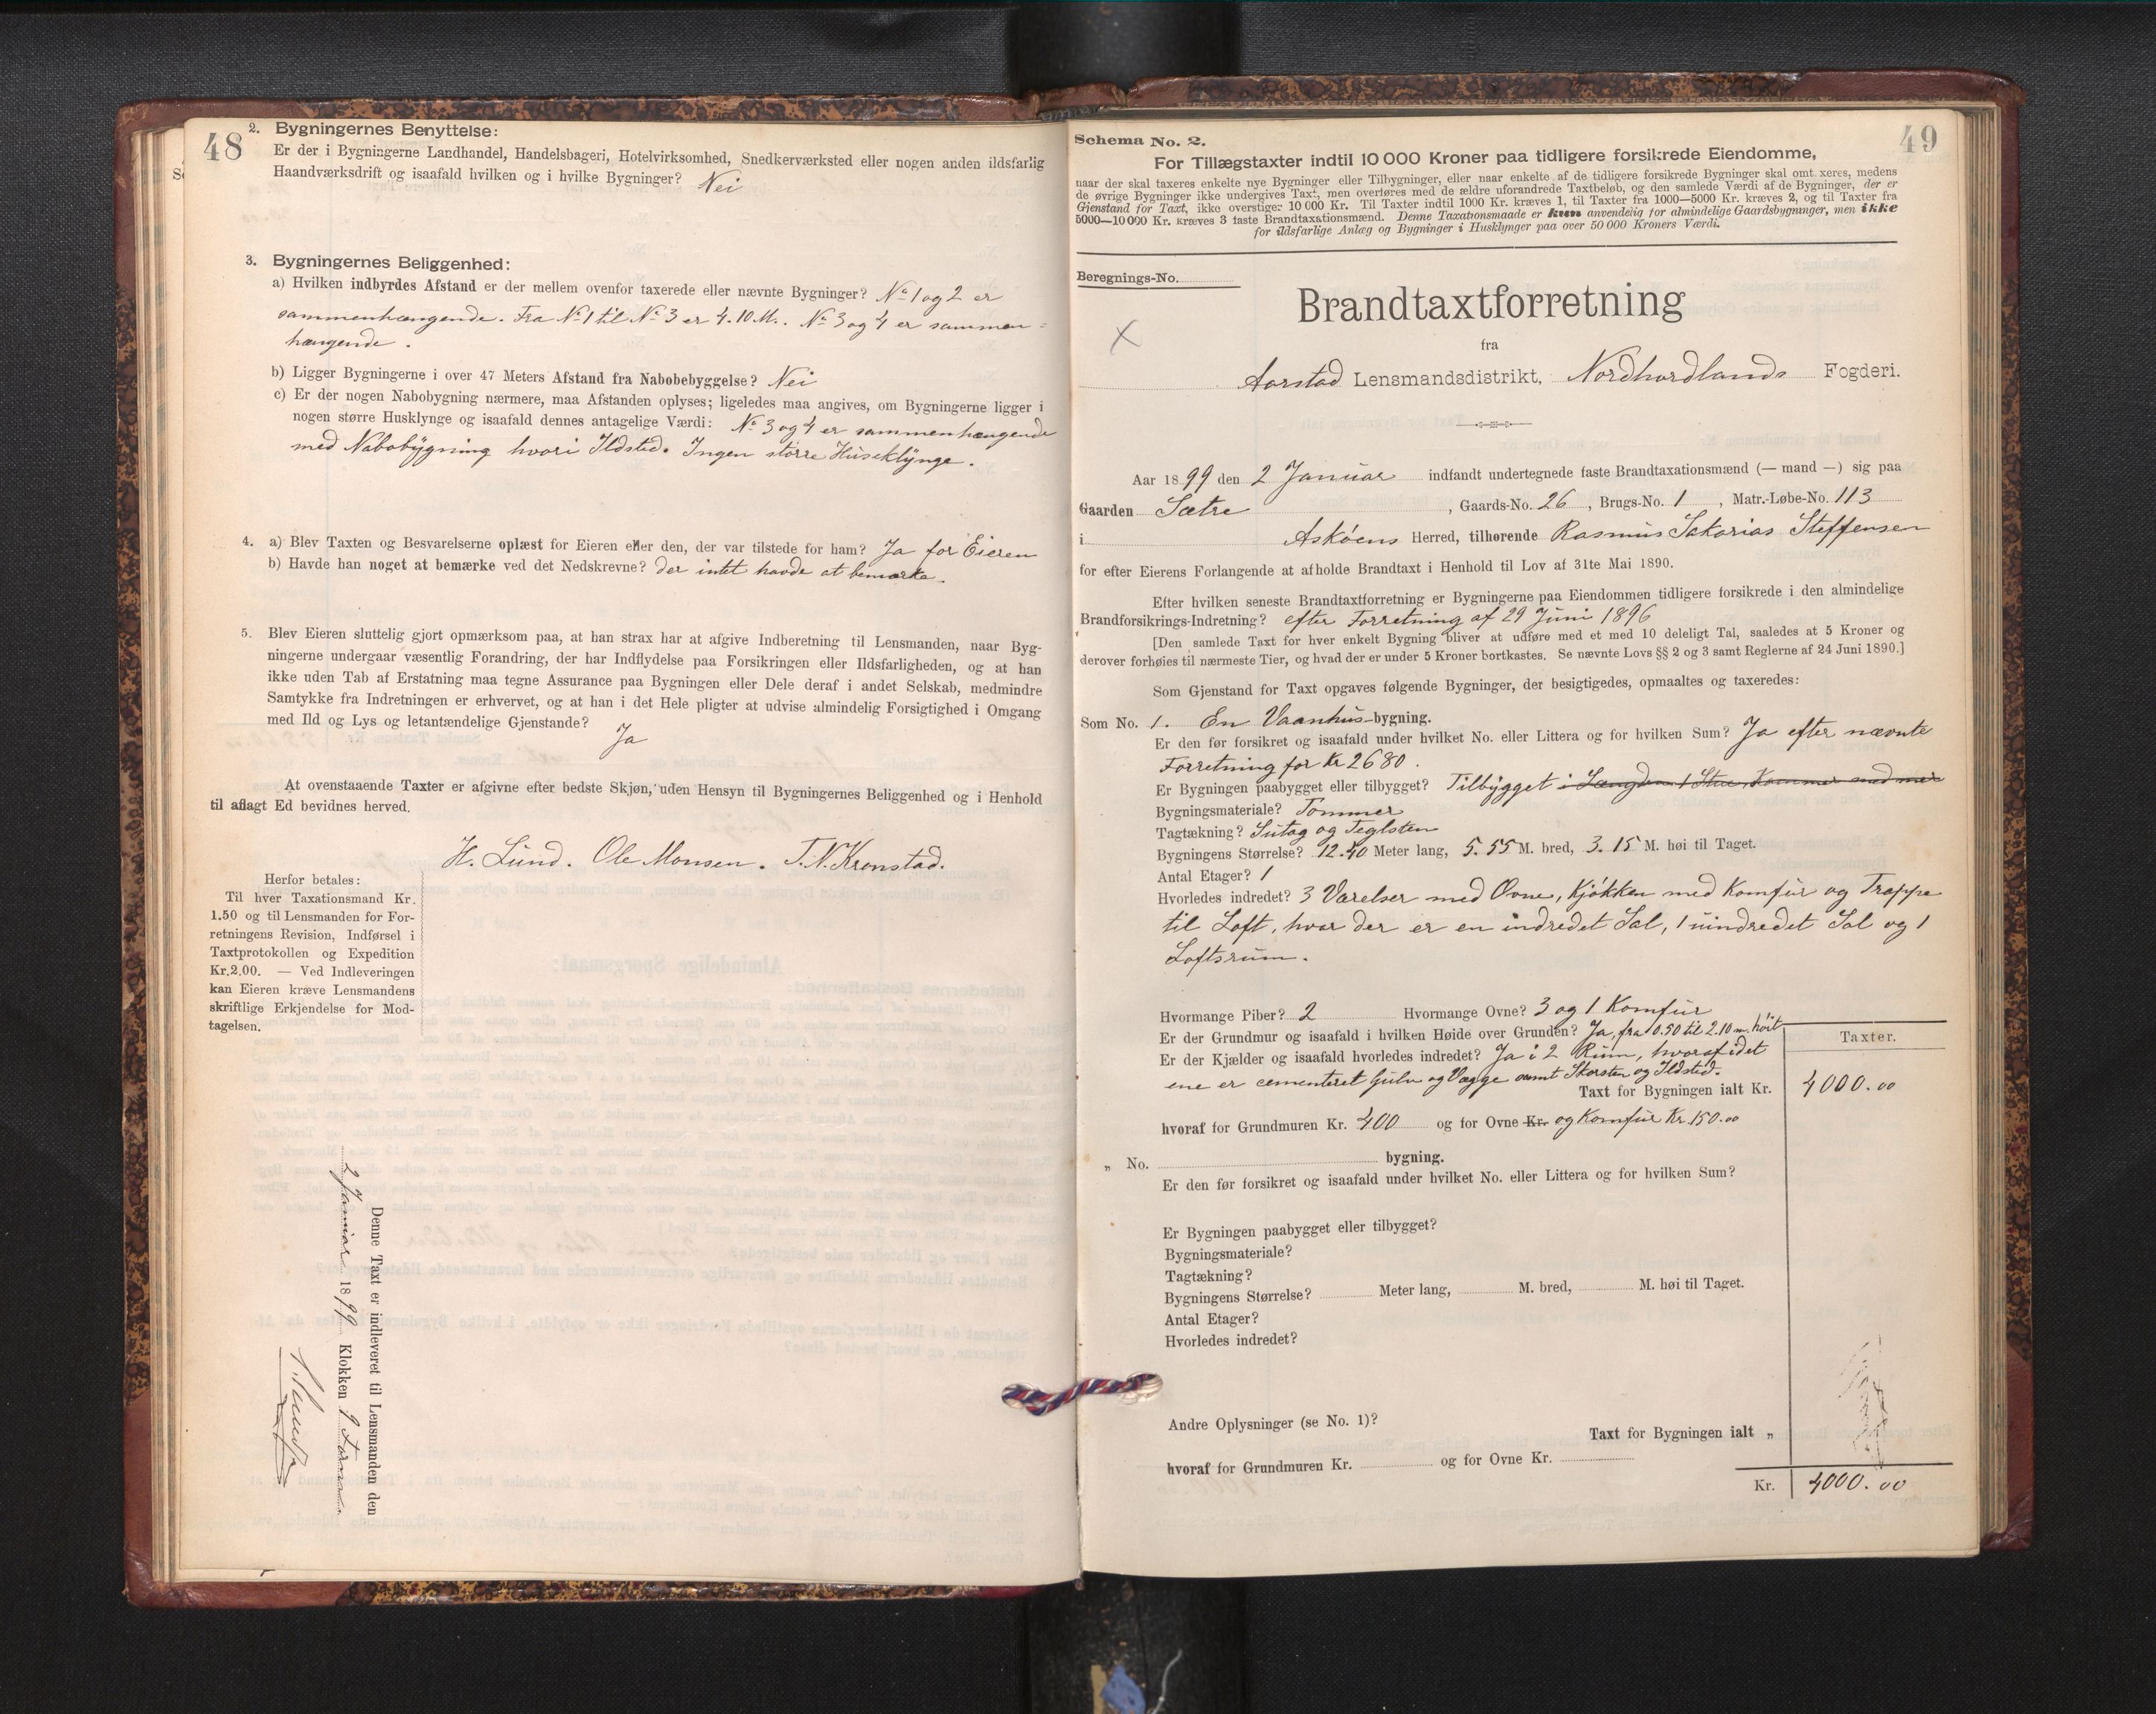 48
2. Bygningernes Benyttelse:
Er der i Bygningerne Landhandel, Handelsbageri, Hotelvirksomhed, Snedkerværksted eller nogen anden ildsfarlig
Haandværksdrift og isaafald hvilken og i hvilke Bygninger? Nei
3. Bygningernes Beliggenhed:
a) Hvilken indbyrdes Afstand er der mellem ovenfor taxerede eller nævnte Bygninger? No 1 og 2 er
sammenhængende. Fra No 1 til No 3 er 4.10 M. No 3 og 4 er sammen=
hængende.
b) Ligger Bygningerne i over 47 Meters Afstand fra Nabobebyggelse? Nei
c) Er der nogen Nabobygning nærmere, maa Afstanden oplyses; ligeledes maa angives, om Bygningerne ligger i
nogen større Husklynge og isaafald dennes antagelige Værdi: No 3 og 4 er sammenhængende
med Nabobygning hvori Ildsted. Ingen större Huseklynge.
4. a) Blev Taxten og Besvarelserne oplæst for Eieren eller den, der var tilstede for ham? Ja for Eieren
b) Havde han noget at bemærke ved det Nedskrevne? der intet havde at bemærke.
5. Blev Eieren sluttelig gjort opmærksom paa, at han strax har at afgive Indberetning til Lensmanden, naar Byg-
ningerne undergaar væsentlig Forandring, der har Indflydelse paa Forsikringen eller Ildsfarligheden, og at han
ikke uden Tab af Erstatning maa tegne Assurance paa Bygningen eller Dele deraf i andet Selskab, medmindre
Samtykke fra Indretningen er erhvervet, og at han i det Hele pligter at udvise almindelig Forsigtighed i Omgang
med Ild og Lys og letantændelige Gjenstande?
Ja
At ovenstaaende Taxter er afgivne efter bedste Skjøn, uden Hensyn til Bygningernes Beliggenhed og i Henhold
til aflagt Ed bevidnes herved.
H. Lund. Ole Monsen. T. N. Kronstad.
Herfor betales:
Til hver Taxationsmand Kr.
1.50 og til Lensmanden for For-
retningens Revision, Indførsel i
Taxtprotokollen og Expedition
Kr. 2.00. — Ved Indleveringen
kan Eieren kræve Lensmandens
skriftlige Erkjendelse for Mod-
tagelsen.
Denne Taxt er indleveret til Lensmanden den
2 Januar 1899 Klokken 9 Formd.
49
Schema No. 2.
For Tillægstaxter indtil 10 000 Kroner paa tidligere forsikrede Eiendomme,
naar der skal taxeres enkelte nye Bygninger eller Tilbygninger, eller naar enkelte af de tidligere forsikrede Bygninger skal omt. xeres, medens
de øvrige Bygninger ikke undergives Taxt, men overføres med de ældre uforandrede Taxtbeløb, og den samlede Værdi af de Bygninger, der er
Gjenstand for Taxt, ikke overstiger 10 000 Kr. Til Taxter indtil 1000 Kr. kræves 1, til Taxter fra 1000—5000 Kr. kræves 2, og til Taxter fra
5000—10 000 Kr. kræves 3 faste Brandtaxationsmænd. Denne Taxationsmaade er kun anvendelig for almindelige Gaardsbygninger, men ikke
for ildsfarlige Anlæg og Bygninger i Husklynger paa over 50 000 Kroners Værdi.
Beregnings-No.
Brandtaxtforretning
fra
Aarstad Lensmandsdistrikt, Nordhordlands Fogderi.
Aar 1899 den 2 Januar indfandt undertegnede faste Brandtaxationsmænd (— mand —) sig paa
Gaarden Sætre, Gaards-No. 26, Brugs-No. 1, Matr.-Løbe-No. 113
i Askøens Herred, tilhørende Rasmus Sakarias Steffensen
for efter Eierens Forlangende at afholde Brandtaxt i Henhold til Lov af 31te Mai 1890.
Efter hvilken seneste Brandtaxtforretning er Bygningerne paa Eiendommen tidligere forsikrede i den almindelige
Brandforsikrings-Indretning? efter Forretning af 29 Juni 1896
[Den samlede Taxt for hver enkelt Bygning bliver at udføre med et med 10 deleligt Tal, saaledes at 5 Kroner og
derover forhøies til nærmeste Tier, og hvad der er under 5 Kroner bortkastes. Se nævnte Lovs §§ 2 og 3 samt Reglerne af 24 Juni 1890.]
Som Gjenstand for Taxt opgaves følgende Bygninger, der besigtigedes, opmaaltes og taxeredes:
Som No. 1. En Vaanhus-bygning.
Er den før forsikret og isaafald under hvilket No. eller Littera og for hvilken Sum? Ja efter nævnte
Forretning for Kr 2680.
Er Bygningen paabygget eller tilbygget? Tilbygget i Længden 1 Stue, Kammer med mer
Bygningsmateriale? Tømmer
Tagtækning? Sutag og Teglsten
Bygningens Størrelse? 12.40 Meter lang, 5.55 M. bred, 3.15 M. høi til Taget.
Antal Etager? 1
Hvorledes indredet? 3 Værelser med Ovne, Kjøkken med Komfur og Trappe
til Loft, hvor der er en indredet Sal, 1 uindredet Sal og 1
Loftsrum.
Hvormange Piber? 2 Hvormange Ovne? 3 og 1 Komfur
Er der Grundmur og isaafald i hvilken Høide over Grunden? Ja, fra 0.50 til 2.10 m. höit
Er der Kjælder og isaafald hvorledes indredet? Ja i 2 Rum, hvoraf i det
ene er cementeret Gulv og Vægge samt Skorsten og Ildsted.
Taxter.
Taxt for Bygningen ialt Kr. 4000.00
hvoraf for Grundmuren Kr. 400 og for Ovne Kr. og Komfur Kr. 150.00
„ No. bygning.
Er den før forsikret og isaafald under hvilket No. eller Littera og for hvilken Sum?
Er Bygningen paabygget eller tilbygget?
Bygningsmateriale?
Tagtækning?
Bygningens Størrelse? Meter lang, M. bred, M. høi til Taget.
Antal Etager?
Hvorledes indredet?
Andre Oplysninger (se No. 1)?
Taxt for Bygningen ialt „
hvoraf for Grundmuren Kr. og for Ovne Kr.
Kr. 4000.00